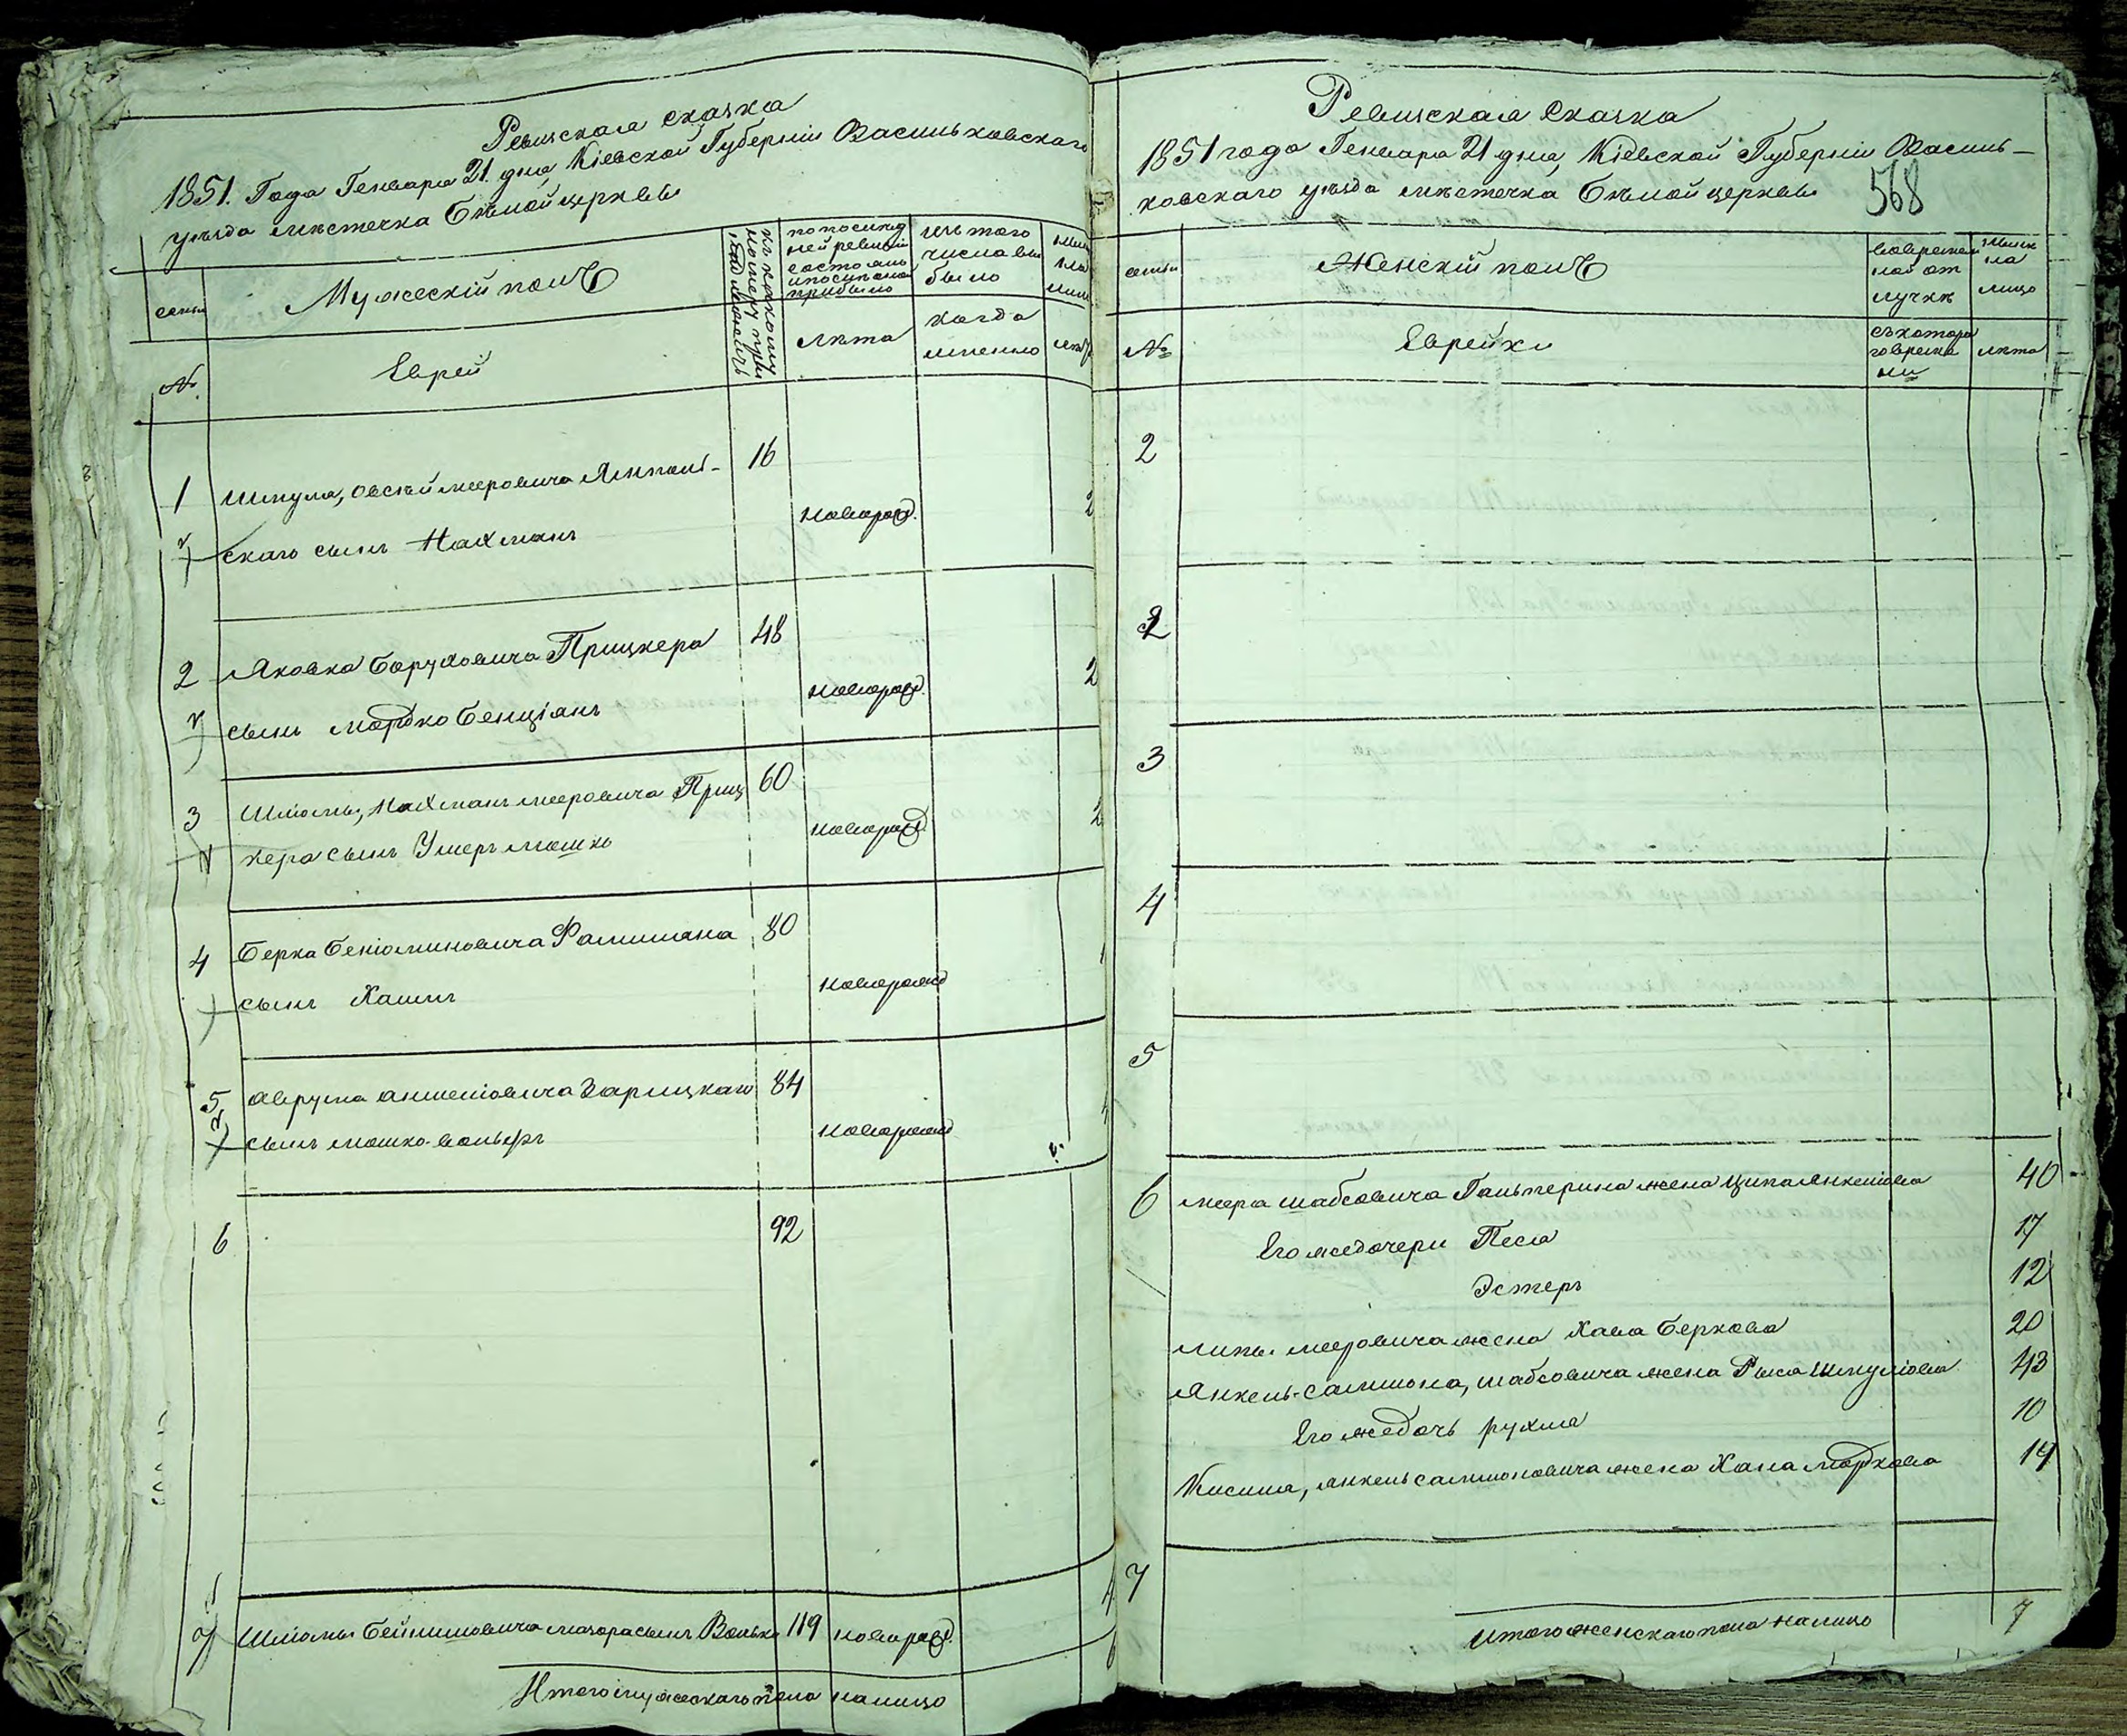 Ревизская сказка
1851. Года Генваря 21. дня, Кіевской Губерніи Васильковскаго
уезда местечка Белой церквы
семьи
Мужескій полъ
по последней ревизіи состояло и после того прибыло
изъ того числа выбыло
№
Еврей
лета
когда именно
лета
1
Шмуля, Овсей мееровича Ямполь-
16
скаго сынъ Нахманъ
новорожд.
2
2
Яковка Боруховича Прицкера
48
сынъ мордко Бенціанъ
новорожд.
2
3
Шліомы, Нахманъ мееровича Приц
60
кера сынъ Ушеръ мошко
новорожд.
2
4
Берка Беніоминовича Фалишана
80
сынъ Хаимъ
новорожд
5
аврума аншеліовича Зарицкаго
84
сынъ мошко-вольфъ
новорожд
6
92
7
Шліомы Бейнишовича мазора сынъ Волько
119
новорожд.
6
Итого мужескаго пола налицо
Ревизская сказка
1851 года Генваря 21 дня, Кіевской Губерніи Василь-
ковскаго уезда местечка Белой церквы
568
семьи
Женскій полъ
во временной отлучке
налицо
№
Еврейки
съ котораго времени
лета
2
2
3
4
5
6
меера шабсовича Гальперина жена Ципа Янкеліова
40
Его же дочери Песя
17
Эстеръ
12
липы мееровича жена Хава Беркова
20
Янкель-самшона, шабсовича жена Рыся Шмуліова
43
Его же дочь рухля
10
Кисиля, янкельсамшоновича жена Хана мордкова
19
7
Итого женскаго пола налицо
7